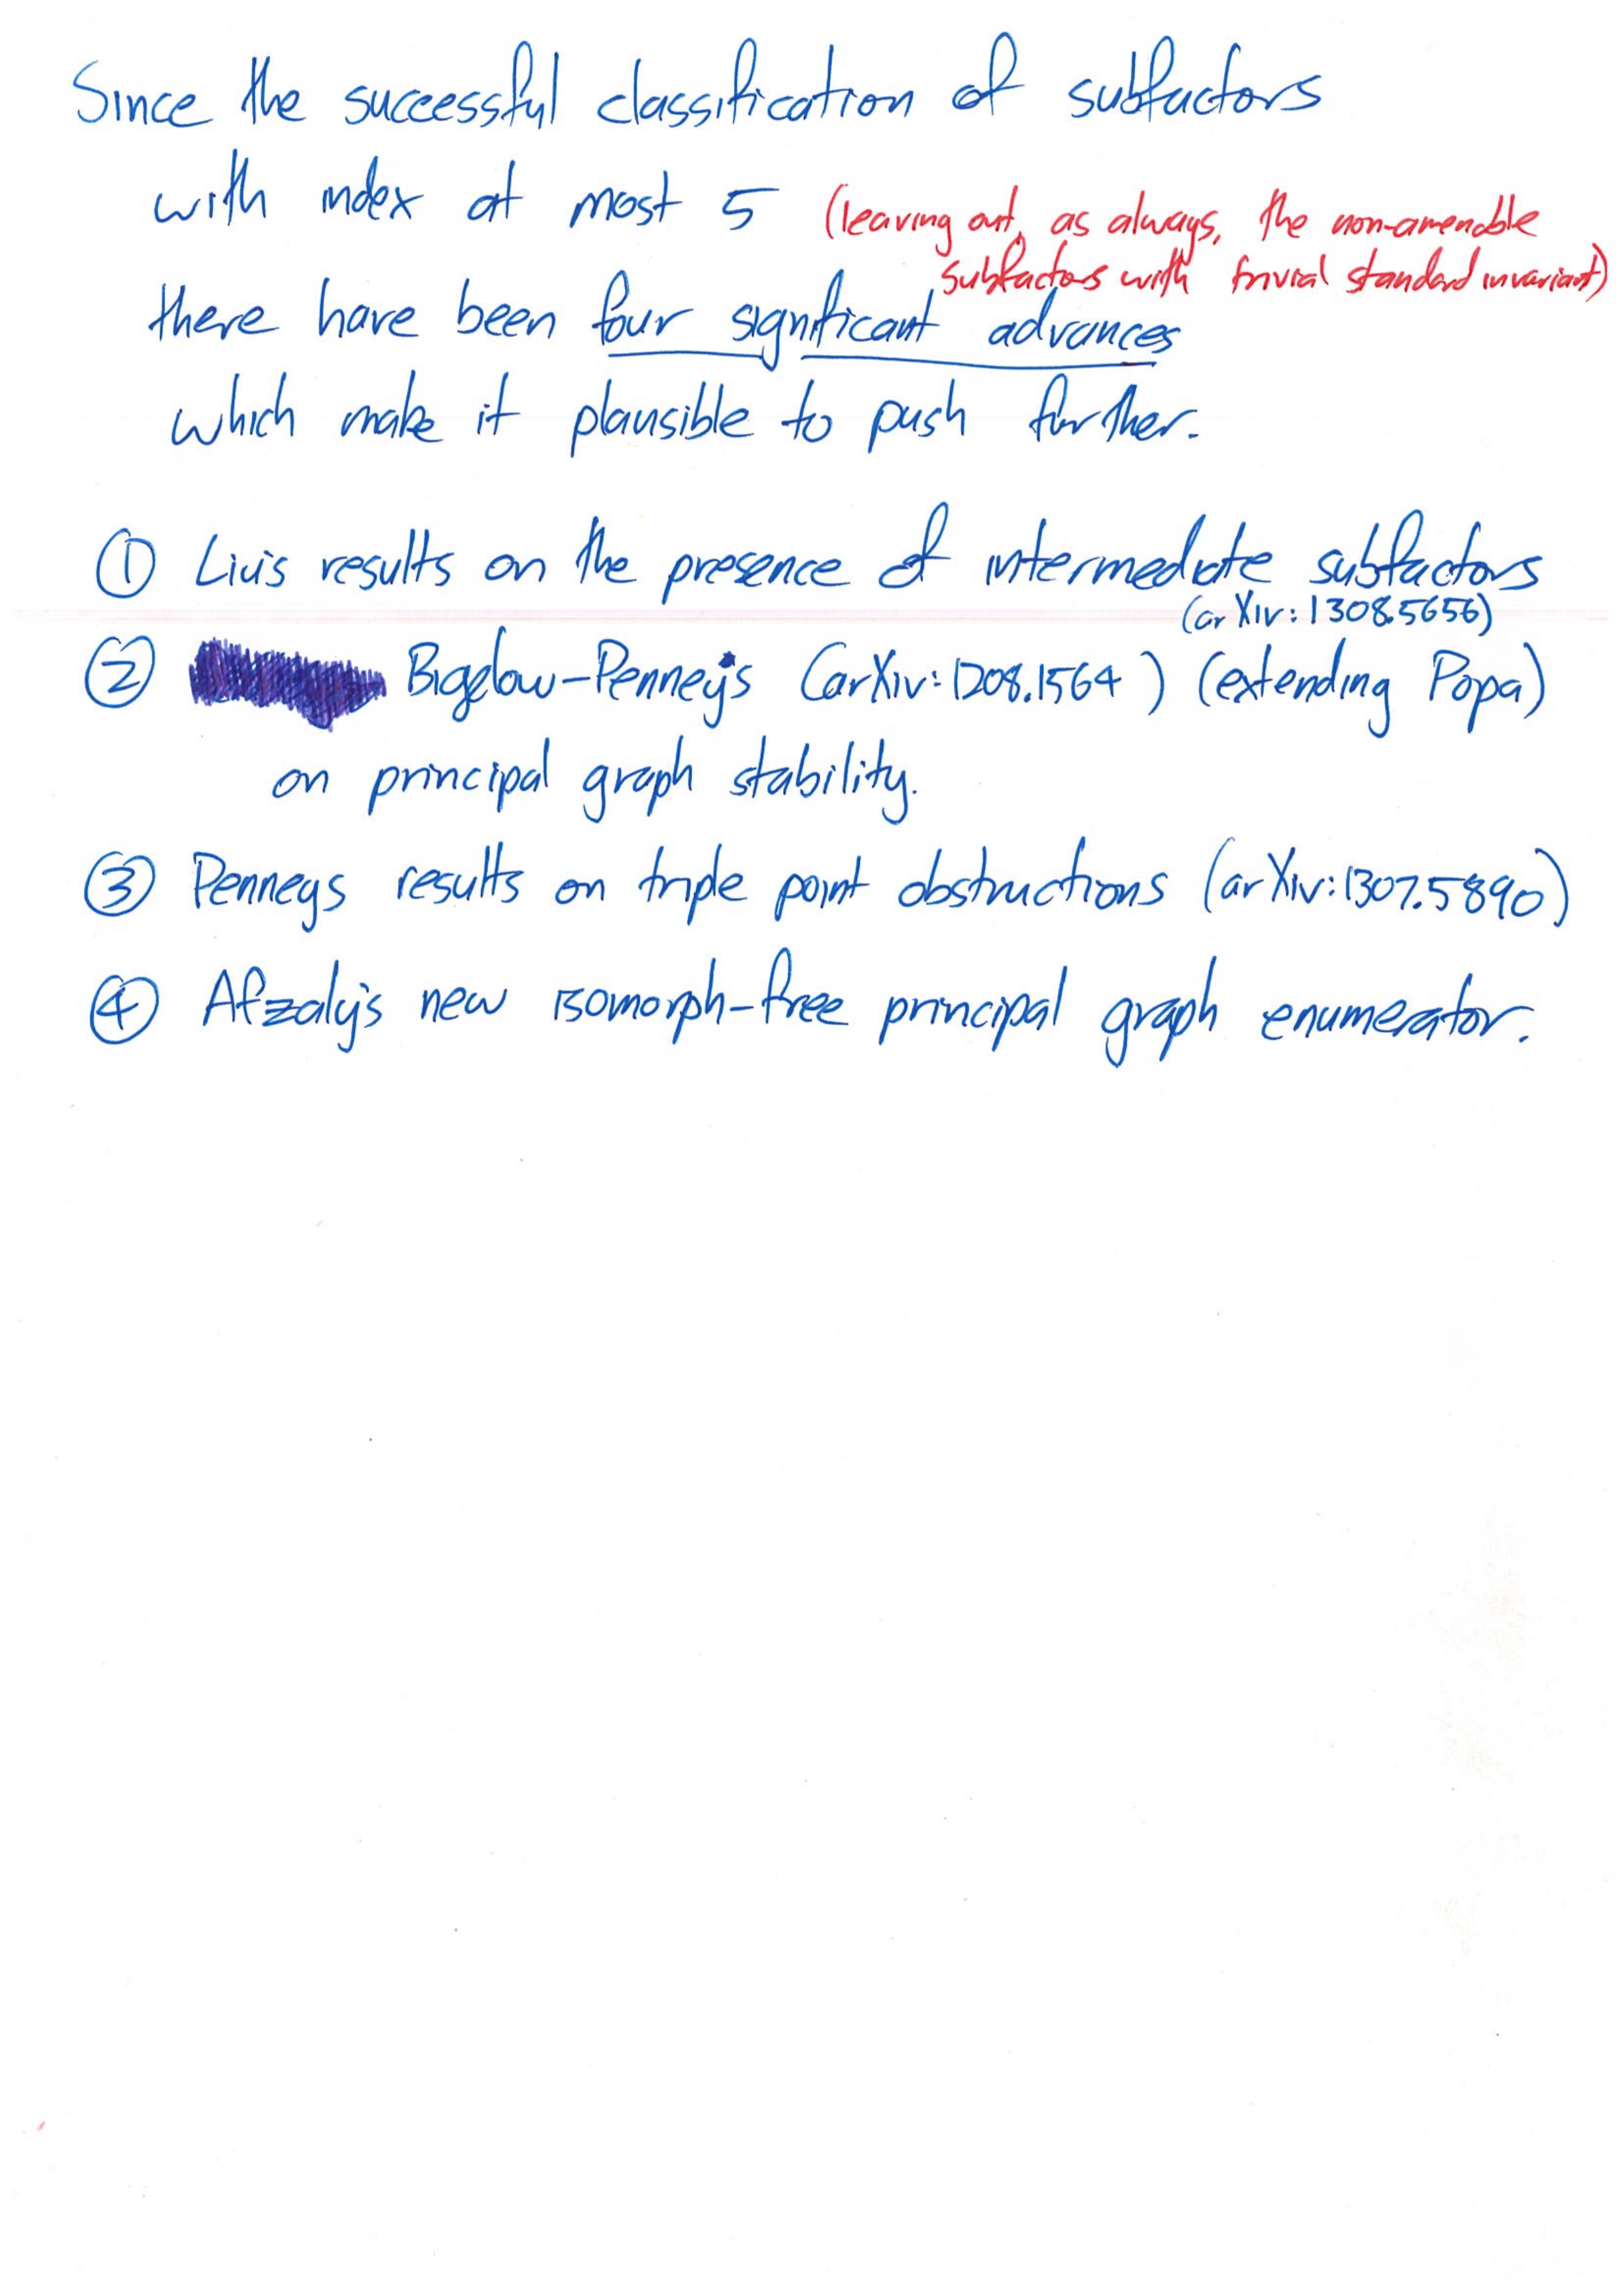 Since the successful classification of subfactors
with index at most 5 (leaving out, as always, the non-amenable
subfactors with trivial standard invariant)
there have been four significant advances
which make it plausible to push further.
① Liu's results on the presence of intermediate subfactors
(arXiv:1308.5656)
② Bigelow-Penneys (arXiv:1208.1564) (extending Popa)
on principal graph stability.
③ Penneys results on triple point obstructions (arXiv:1307.5890)
④ Afzaly's new isomorph-free principal graph enumerator.